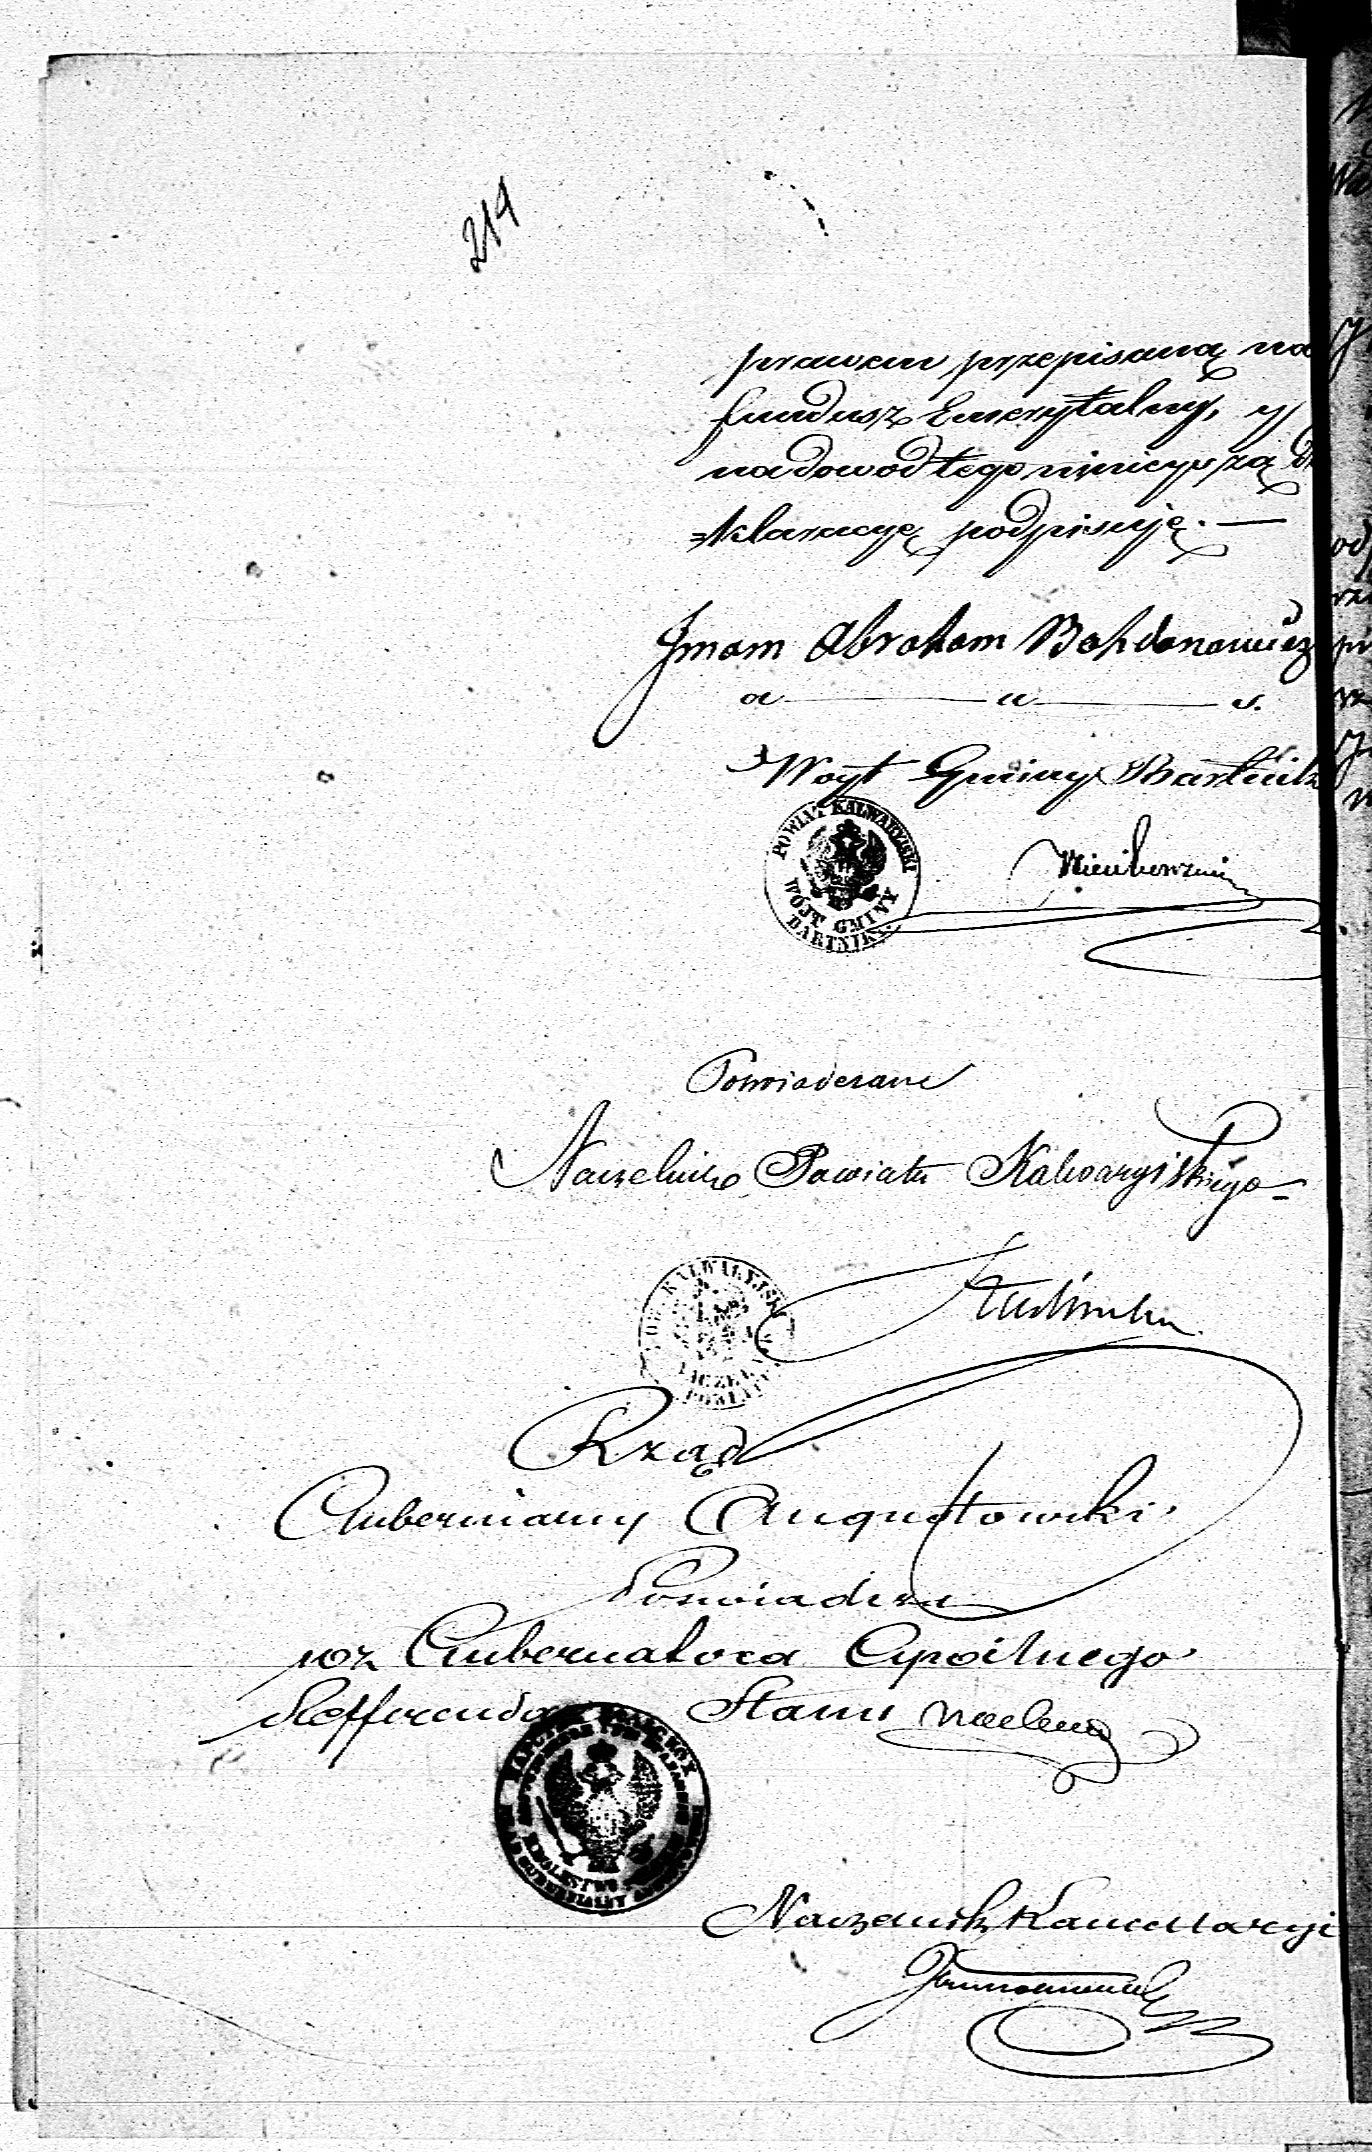 214
prawem przepisaną na
fundusz Emerytalny, y
na dowod tego ninieyszą de
=klaracyę podpisuję. —
Imam Abraham Bohdanowicz
a — u — s.
Woyt Gminy Bartniki
POWIAT KALWARYJSKI
WÓJT GMINY
BARTNIKI
Poswiadczam
Naczelnik Powiatu Kalwaryiskiego
KALWARYJSKI
NACZELNIK
POWIATU
Rząd
Gubernialny Augustowski
Poswiadcza
wz Gubernatora Cywilnego
Refferendarz Stanu
KRÓLESTWO
RZĄD GUBERNIALNY
Naczelnik Kancellaryi